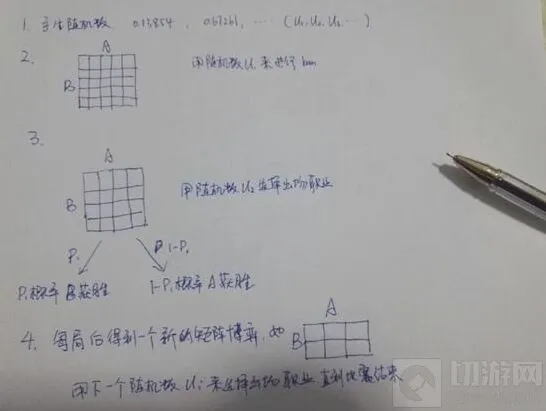 1. 产生随机数 0.13854, 0.67261, … (U₁, U₂, U₃ …)
2.
A
B
用随机数 U₁ 来进行 ban
3.
A
B
用随机数 U₂ 选择出场职业
P₁
1-P₁
P₁概率 B获胜
1-P₁概率 A获胜
4. 每局后得到一个新的矩阵博弈,如
A
B
用下一个随机数 Uᵢ 来选择出场职业 直到比赛结束
切游网